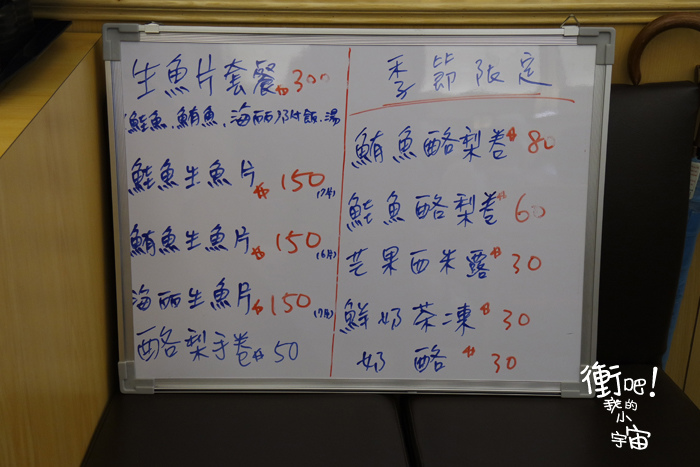 生魚片套餐$300
(鮭魚.鮪魚.海丽)附飯.湯
鮭魚生魚片$150(7片)
鮪魚生魚片$150(6片)
海丽生魚片$150(7片)
酪梨手卷$50
季節限定
鮪魚酪梨卷$80
鮭魚酪梨卷$60
芒果西米露$30
鮮奶茶凍$30
奶酪$30
衝吧!
我的
小
宇宙